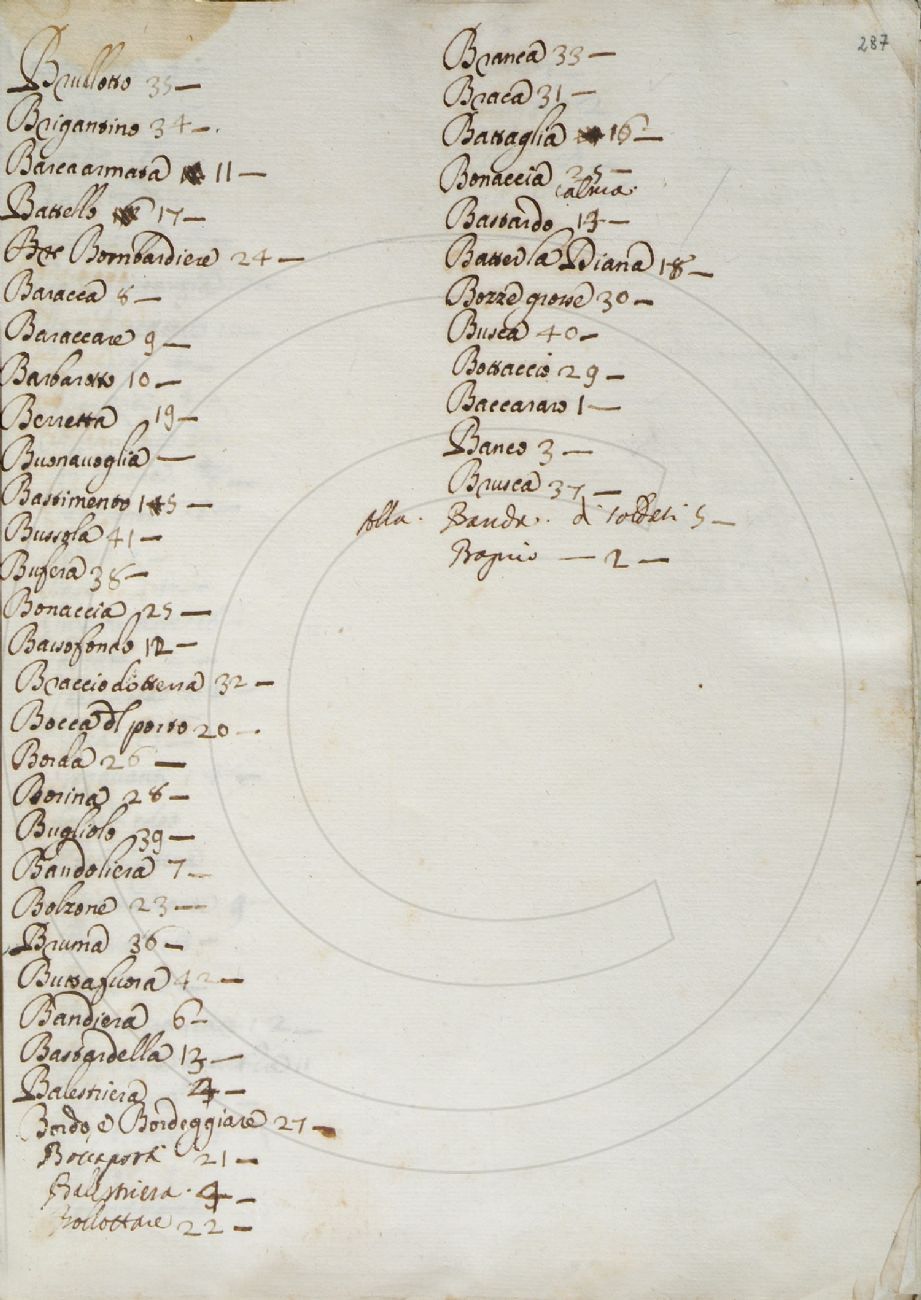 287
Brullotto 35 —
Brigantino 34 —.
Barca armata 11 —
Battello 17 —
Bombardiere 24 —
Baracca 8 —
Baraccare 9 —
Barbarotto 10 —
Berretta 19 —
Buonavoglia —
Bastimento 15 —
Bussola 41 —
Bufera 38 —
Bonaccia 25 —
Bassofondo 12 —
Braccio di terra 32 —
Bocca del porto 20 —.
Borda 26 —
Borina 28 —
Bugliolo 39 —
Bandoliera 7 —
Bolzone 23 —
Bruma 36 —
Buttafuora 42 —
Bandiera 6 —
Bastardella 13 —
Balestriera 4 —
Bordo, e Bordeggiare 27 —
Boccaporti 21 —
Balestriera. 4 —
Bollottare 22 —
Branca 33 —
Braca 31 —
Battaglia 16 —
Bonaccia 25 —
calma.
Bastardo 14 —
Batter la Diana 18 —
Bozze grosse 30 —
Busca 40 —
Bottaccio 29 —
Baccararo 1 —
Banco 3 —
Brusca 37 —
Alla. Banda. di soldati 5 —
Bagnio — 2 —